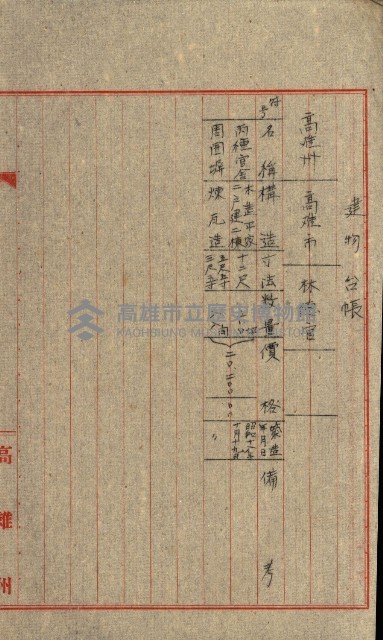 建物台帳
高雄州 高雄市 林德官
符号 名稱 構造 寸法 数量 價格 築造年月日 備考
丙種官舍 木造平家 二戸建二棟 十二尺
周囲塀 煉瓦造 五尺 三尺 二〇.二〇〇.〇〇 昭和十八年十月十九日
〃
高雄州
高雄市立歷史博物館
KAOHSIUNG MUSEUM OF HISTORY